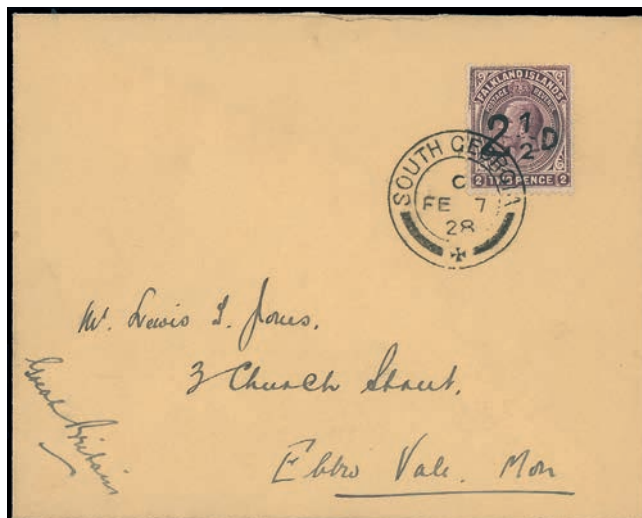 FALKLAND ISLANDS
POSTAGE REVENUE
2½D
2 TWO PENCE 2
SOUTH GEORGIA
C
FE 7
28
Mr. Lewis J. Jones,
3 Church Street,
Ebbw Vale. Mon
Great Britain